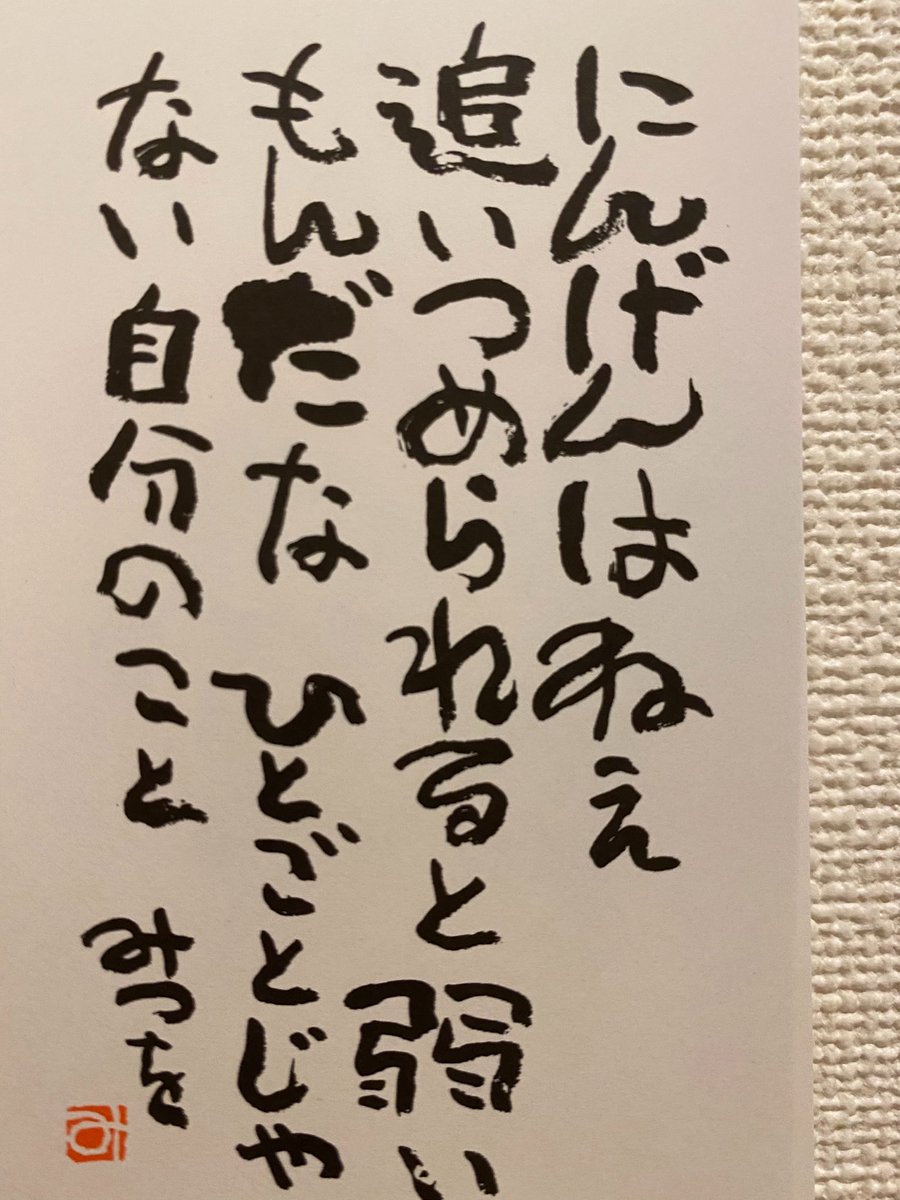 にんげんはねえ
追いつめられると弱い
もんだな ひとごとじゃ
ない自分のこと みつを